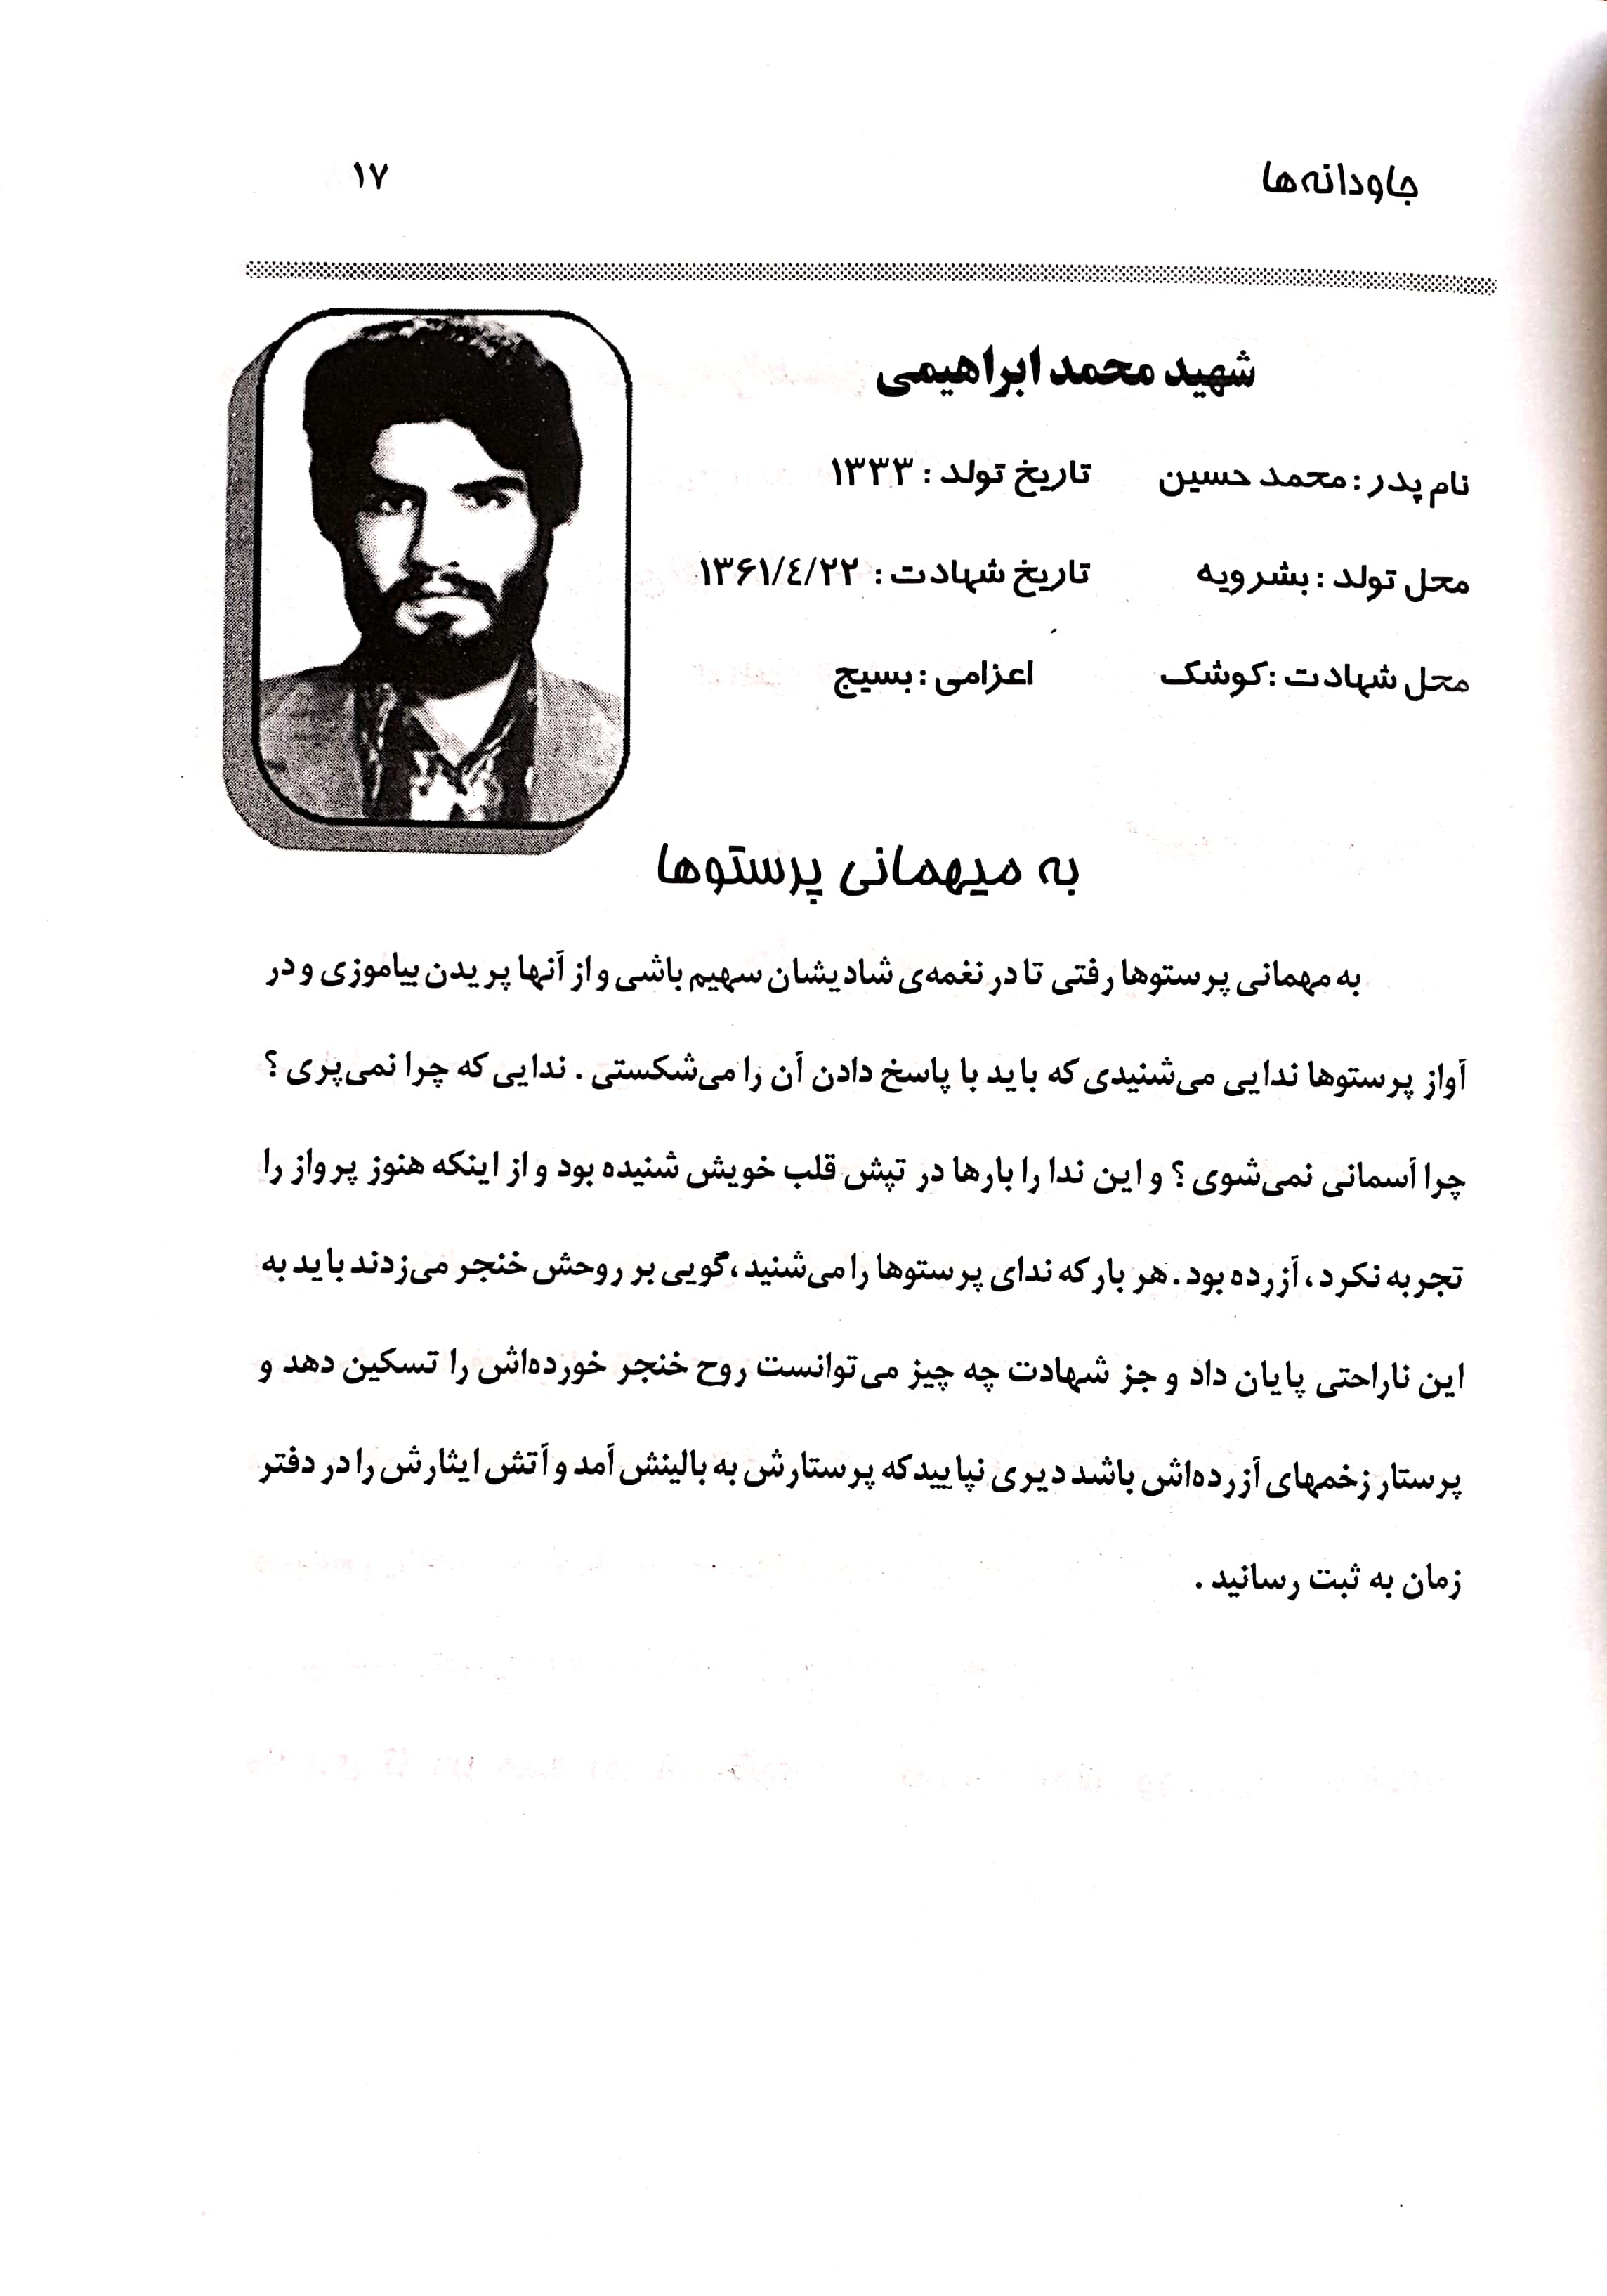 جاودانه‌ها ۱۷
شهید محمد ابراهیمی
نام پدر : محمد حسین تاریخ تولد : ۱۳۳۳
محل تولد : بشرویه تاریخ شهادت : ۱۳۶۱/٤/۲۲
محل شهادت : کوشک اعزامی : بسیج
به میهمانی پرستوها
به مهمانی پرستوها رفتی تا در نغمه‌ی شادیشان سهیم باشی و از آنها پریدن بیاموزی و در
آواز پرستوها ندایی می‌شنیدی که باید با پاسخ دادن آن را می‌شکستی . ندایی که چرا نمی‌پری ؟
چرا آسمانی نمی‌شوی ؟ و این ندا را بارها در تپش قلب خویش شنیده بود و از اینکه هنوز پرواز را
تجربه نکرد ، آزرده بود . هر بار که ندای پرستوها را می‌شنید ، گویی بر روحش خنجر می‌زدند باید به
این ناراحتی پایان داد و جز شهادت چه چیز می‌توانست روح خنجر خورده‌اش را تسکین دهد و
پرستار زخمهای آزرده‌اش باشد دیری نپایید که پرستارش به بالینش آمد و آتش ایثارش را در دفتر
زمان به ثبت رسانید .